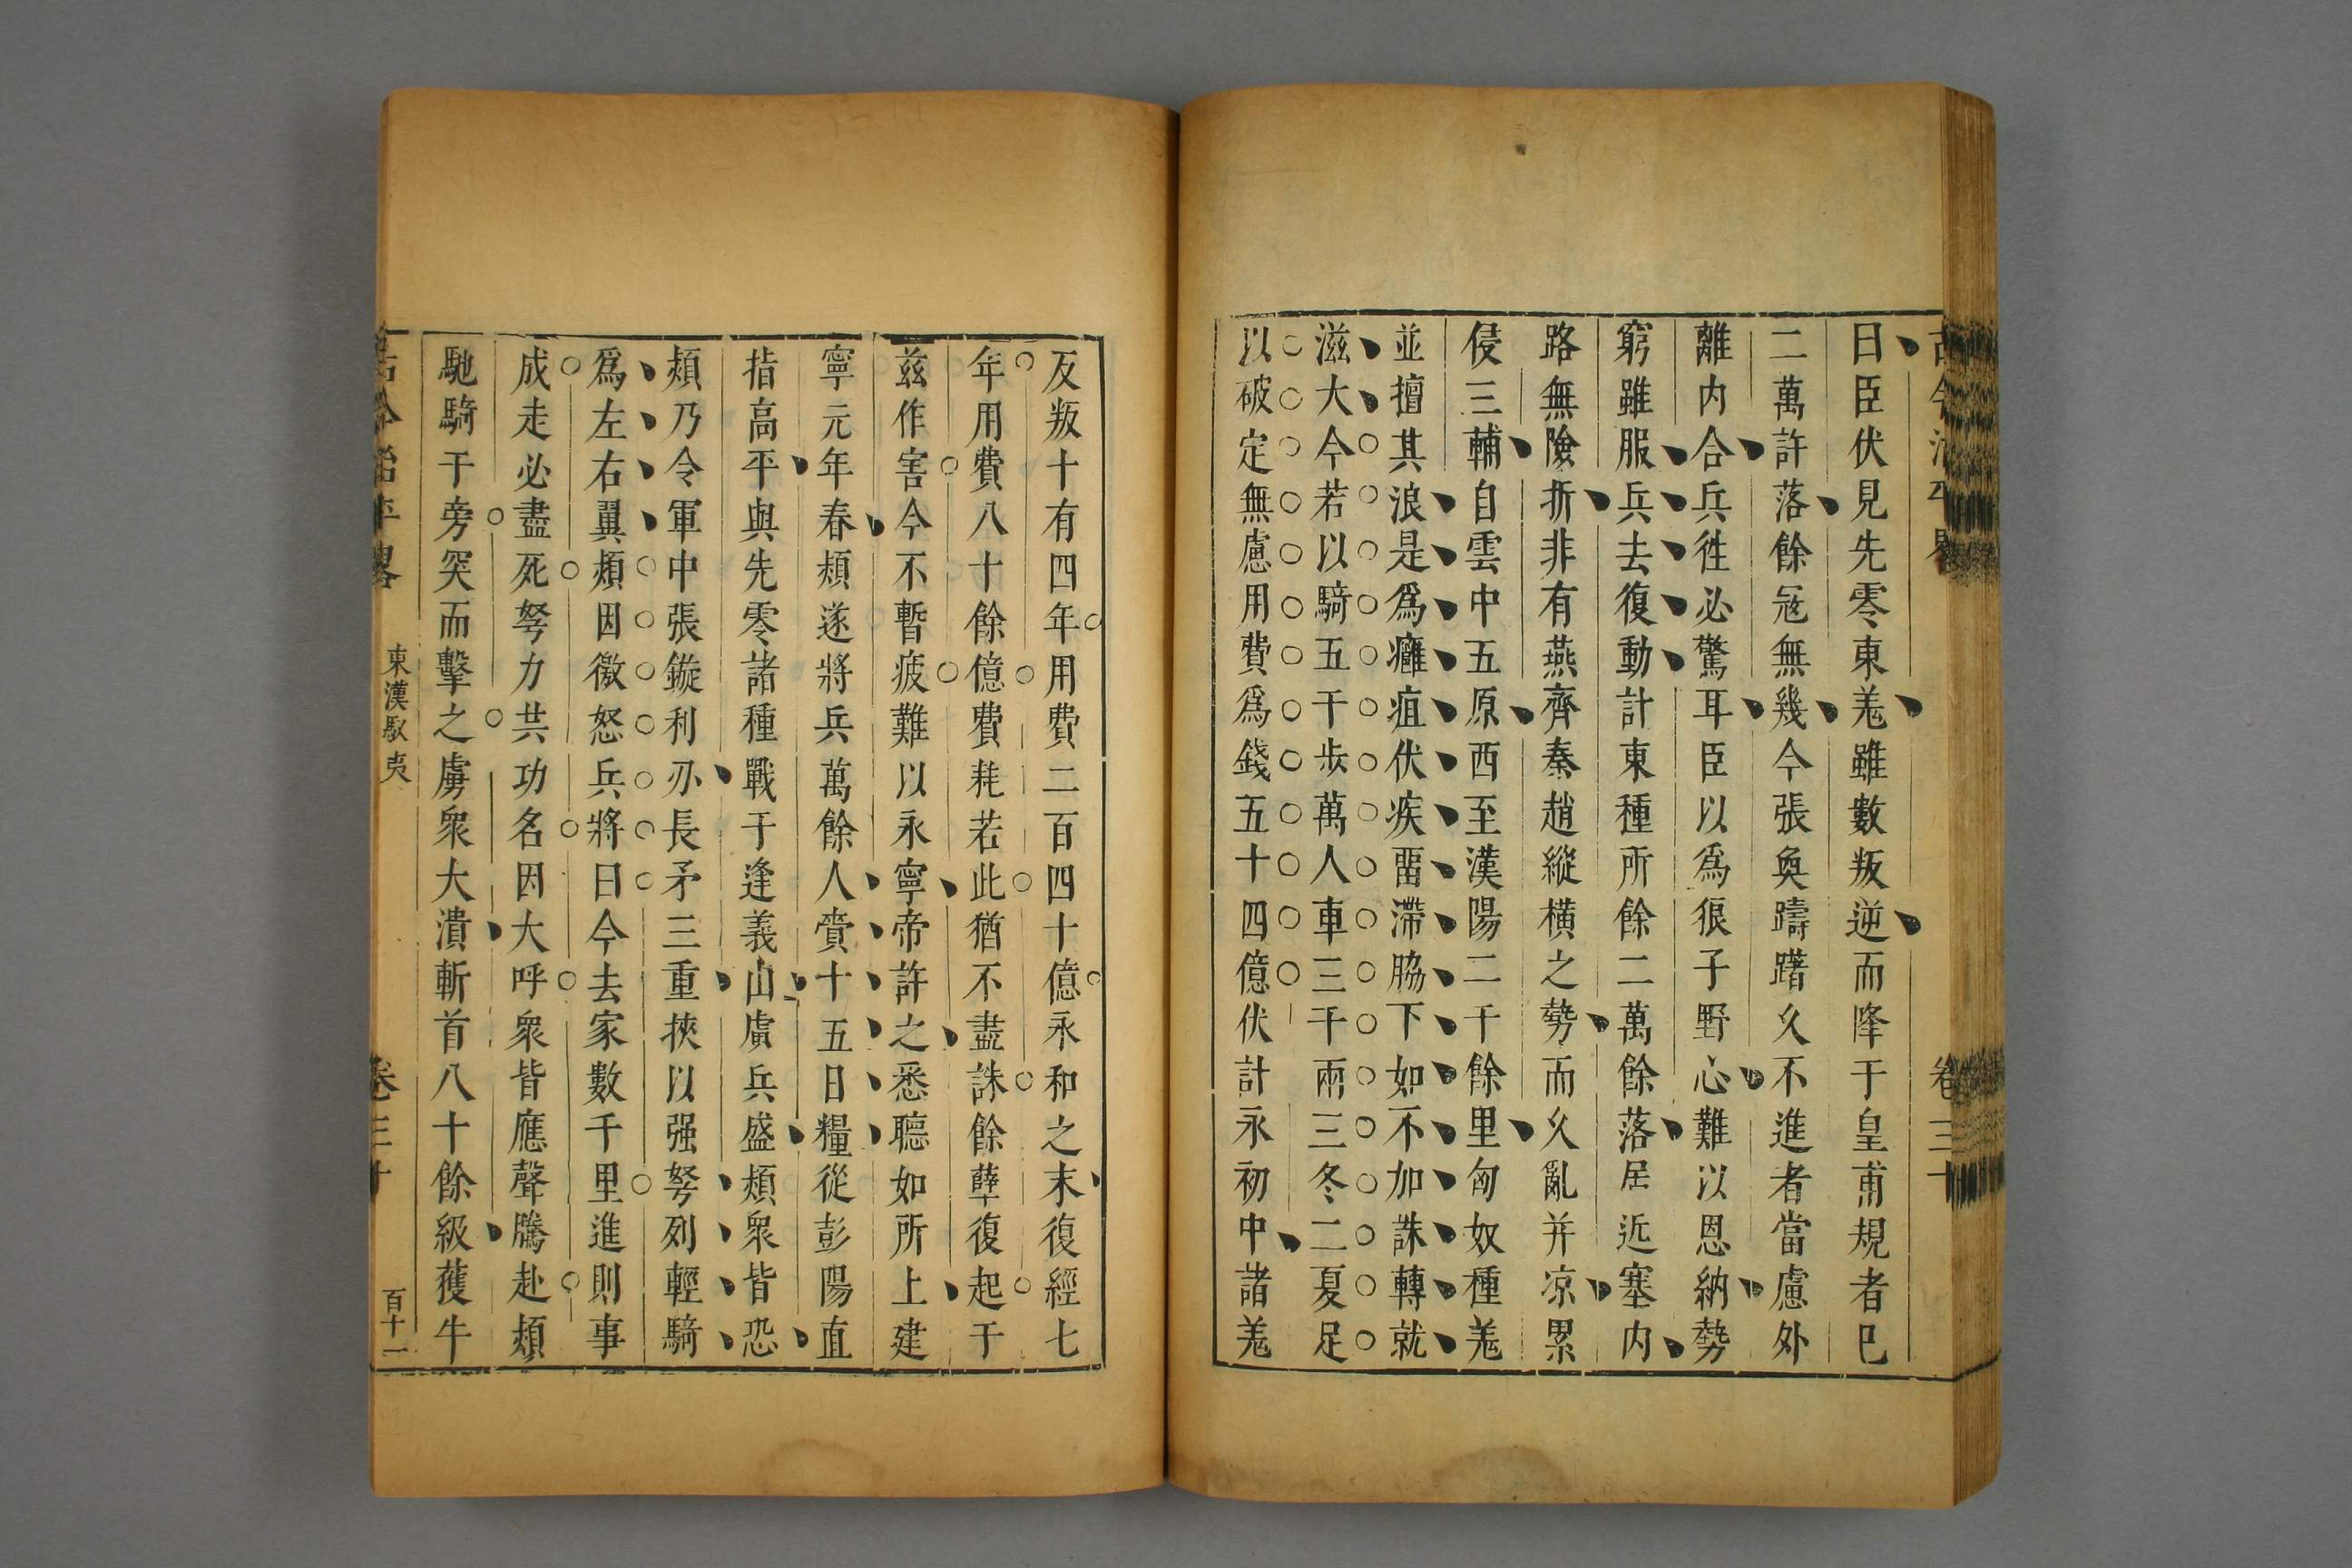 曰臣伏見先零東羌雖數叛逆而降于皇甫規者已
二萬許落餘冦無幾今張奐躊躇久不進者當慮外
離内合兵徃必驚耳臣以爲狼子野心難以恩納勢
窮雖服兵去復動計東種所餘二萬餘落居近塞内
路無險折非有燕齊秦趙縱横之勢而久亂并凉累
侵三輔自雲中五原西至漢陽二千餘里匈奴種羌
並擅其浪是爲癰疽伏疾畱滯脇下如不加誅轉就
滋大今若以騎五千步萬人車三千兩三冬二夏足
以破定無慮用費爲錢五十四億伏計永初中諸羌
反叛十有四年用費二百四十億永和之末復經七
年用費八十餘億費耗若此猶不盡誅餘孽復起于
兹作害今不暫疲難以永寧帝許之悉聽如所上建
寧元年春熲遂將兵萬餘人賫十五日糧從彭陽直
指高平與先零諸種戰于逢義山虜兵盛熲衆皆恐
熲乃令軍中張鏇利刃長矛三重挾以强弩列輕騎
爲左右翼熲因激怒兵將曰今去家數千里進則事
成走必盡死努力共功名因大呼衆皆應聲騰赴熲
馳騎于旁突而擊之虜衆大潰斬首八十餘級獲牛
古今治平畧
東漢馭夷
卷三十
百十一